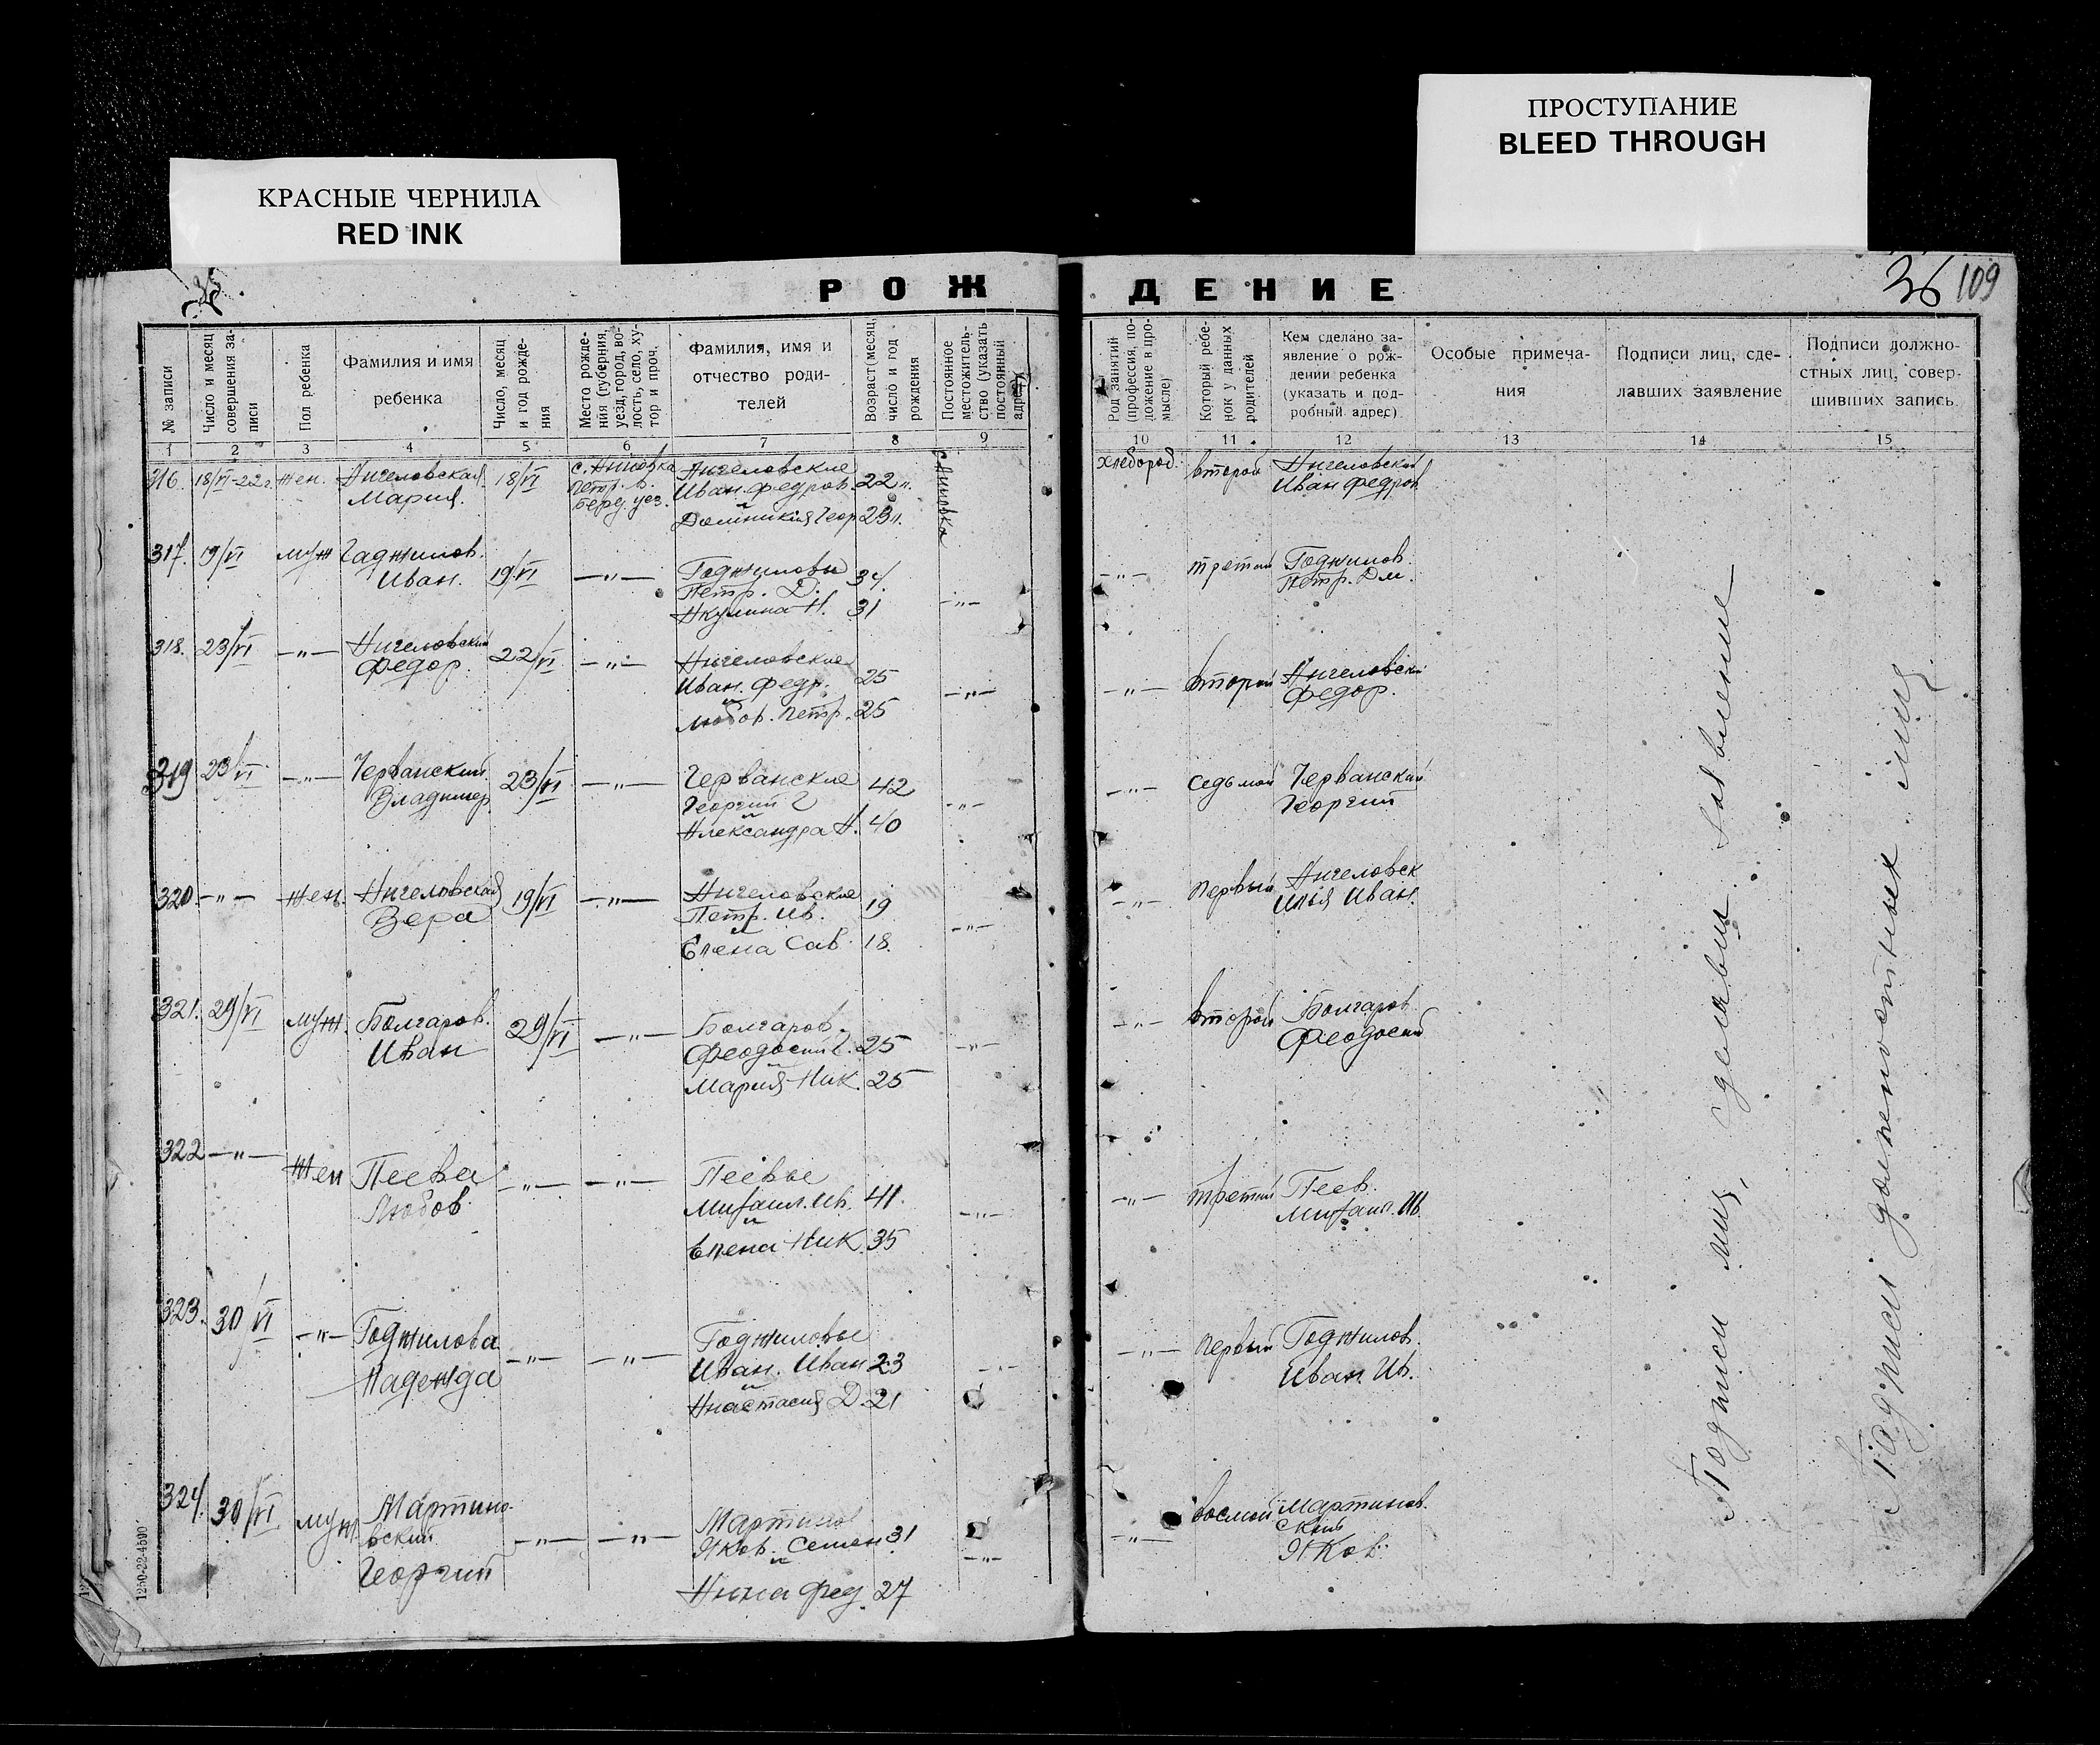 КРАСНЫЕ ЧЕРНИЛА
RED INK
ПРОСТУПАНИЕ
BLEED THROUGH
РОЖДЕНИЕ
36 109
№ записи
Число и месяц совершения записи
Пол ребенка
Фамилия и имя ребенка
Число, месяц и год рождения
Место рождения (губерния, уезд, город, волость, село, хутор и проч.
Фамилия, имя и отчество родителей
Возраст (месяц, число и год рождения
Постоянное местожительство (указать постоянный адрес)
Род занятий (профессия, положение в промысле)
Который ребенок у данных родителей
Кем сделано заявление о рождении ребенка (указать и подробный адрес)
Особые примечания
Подписи лиц, сделавших заявление
Подписи должностных лиц, совершивших запись.
1 2 3 4 5 6 7 8 9 10 11 12 13 14 15
316. 18/VI-22г. жен. Ангеловская Мария. 18/VI с. Анновка Петр. В. Берд. уез. Ангеловские Иван. Федров. 22 л. и Домникия Геор 23 л. с. Анновка хлебород. второй Ангеловский Иван Федров
317. 19/VI муж Гаджилов. Иван. 19/VI —"— Годжиловы Петр. Д. 34. Акулина Н. 31 —"— —"— третий Годжилов. Петр. Дм.
318. 23/VI —"— Ангеловский Федор. 22/VI —"— Ангеловские Иван. Федр. 25 и Любов. Петр. 25 —"— —"— второй Ангеловски Федор.
319 23/VI —"— Черванский Владимер 23/VI —"— Черванские Георгий Г 42 и Александра А. 40 —"— —"— седьмой Черванский Георгий
320 —"— жен. Ангеловская Вера 19/VI —"— Ангеловские Петр. Ив. 19 и Елена Сав. 18. —"— —"— первый Ангеловск Илья Иван.
321. 29/VI муж. Болгаров. Иван 29/VI —"— Болгаров. Феодосий Г. 25 и Мария Ник. 25 —"— —"— второй Болгаров Феодосий
322 —"— жен Пеева Любов —"— —"— Пеевые Михаил. Ив. 41. и Елена Ник. 35 —"— —"— третий Пеев. Михаил. Ив.
323. 30/VI —"— Годжилова Надежда —"— —"— Годжиловы Иван. Иван 23 и Анастасия Д. 21 —"— —"— первый Годжилов. Иван. Ив.
324. 30/VI муж. Мартиновский Георгий —"— —"— Мартинов Яков. Семен 31 и Анна Фед. 27 —"— —"— восмой Мартинов.ский Яков.
Подписи лиц, сделавш. заявление
Подписи должностных лиц
1250-22-4590